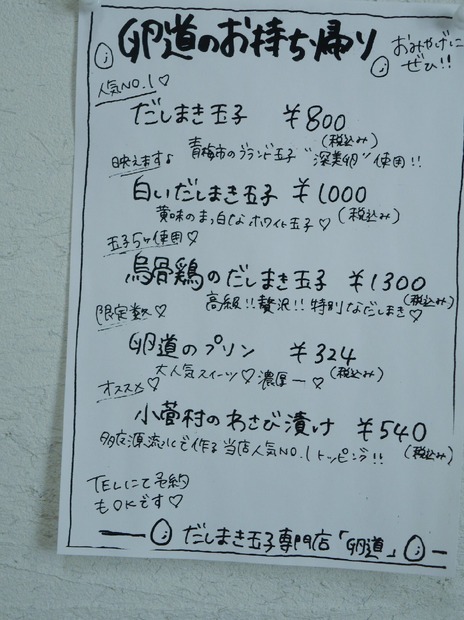 卵道のお持ち帰り
おみやげに
ぜひ!!
人気NO.1♡
だしまき玉子 ¥800
(税込み)
青梅市のブランド玉子"深美卵"使用!!
映えます♪
白いだしまき玉子 ¥1000
(税込み)
黄味のまっ白なホワイト玉子♡
玉子5ヶ使用♡
烏骨鶏のだしまき玉子 ¥1300
(税込み)
高級!!贅沢!!特別なだしまき♡
限定数♡
卵道のプリン ¥324
(税込み)
大人気スイーツ♡濃厚ー♡
オススメ♡
小菅村のわさび漬け ¥540
(税込み)
多摩源流水で作る当店人気NO.1トッピング!!
TELにて予約
もOKです♡
だしまき玉子専門店「卵道」